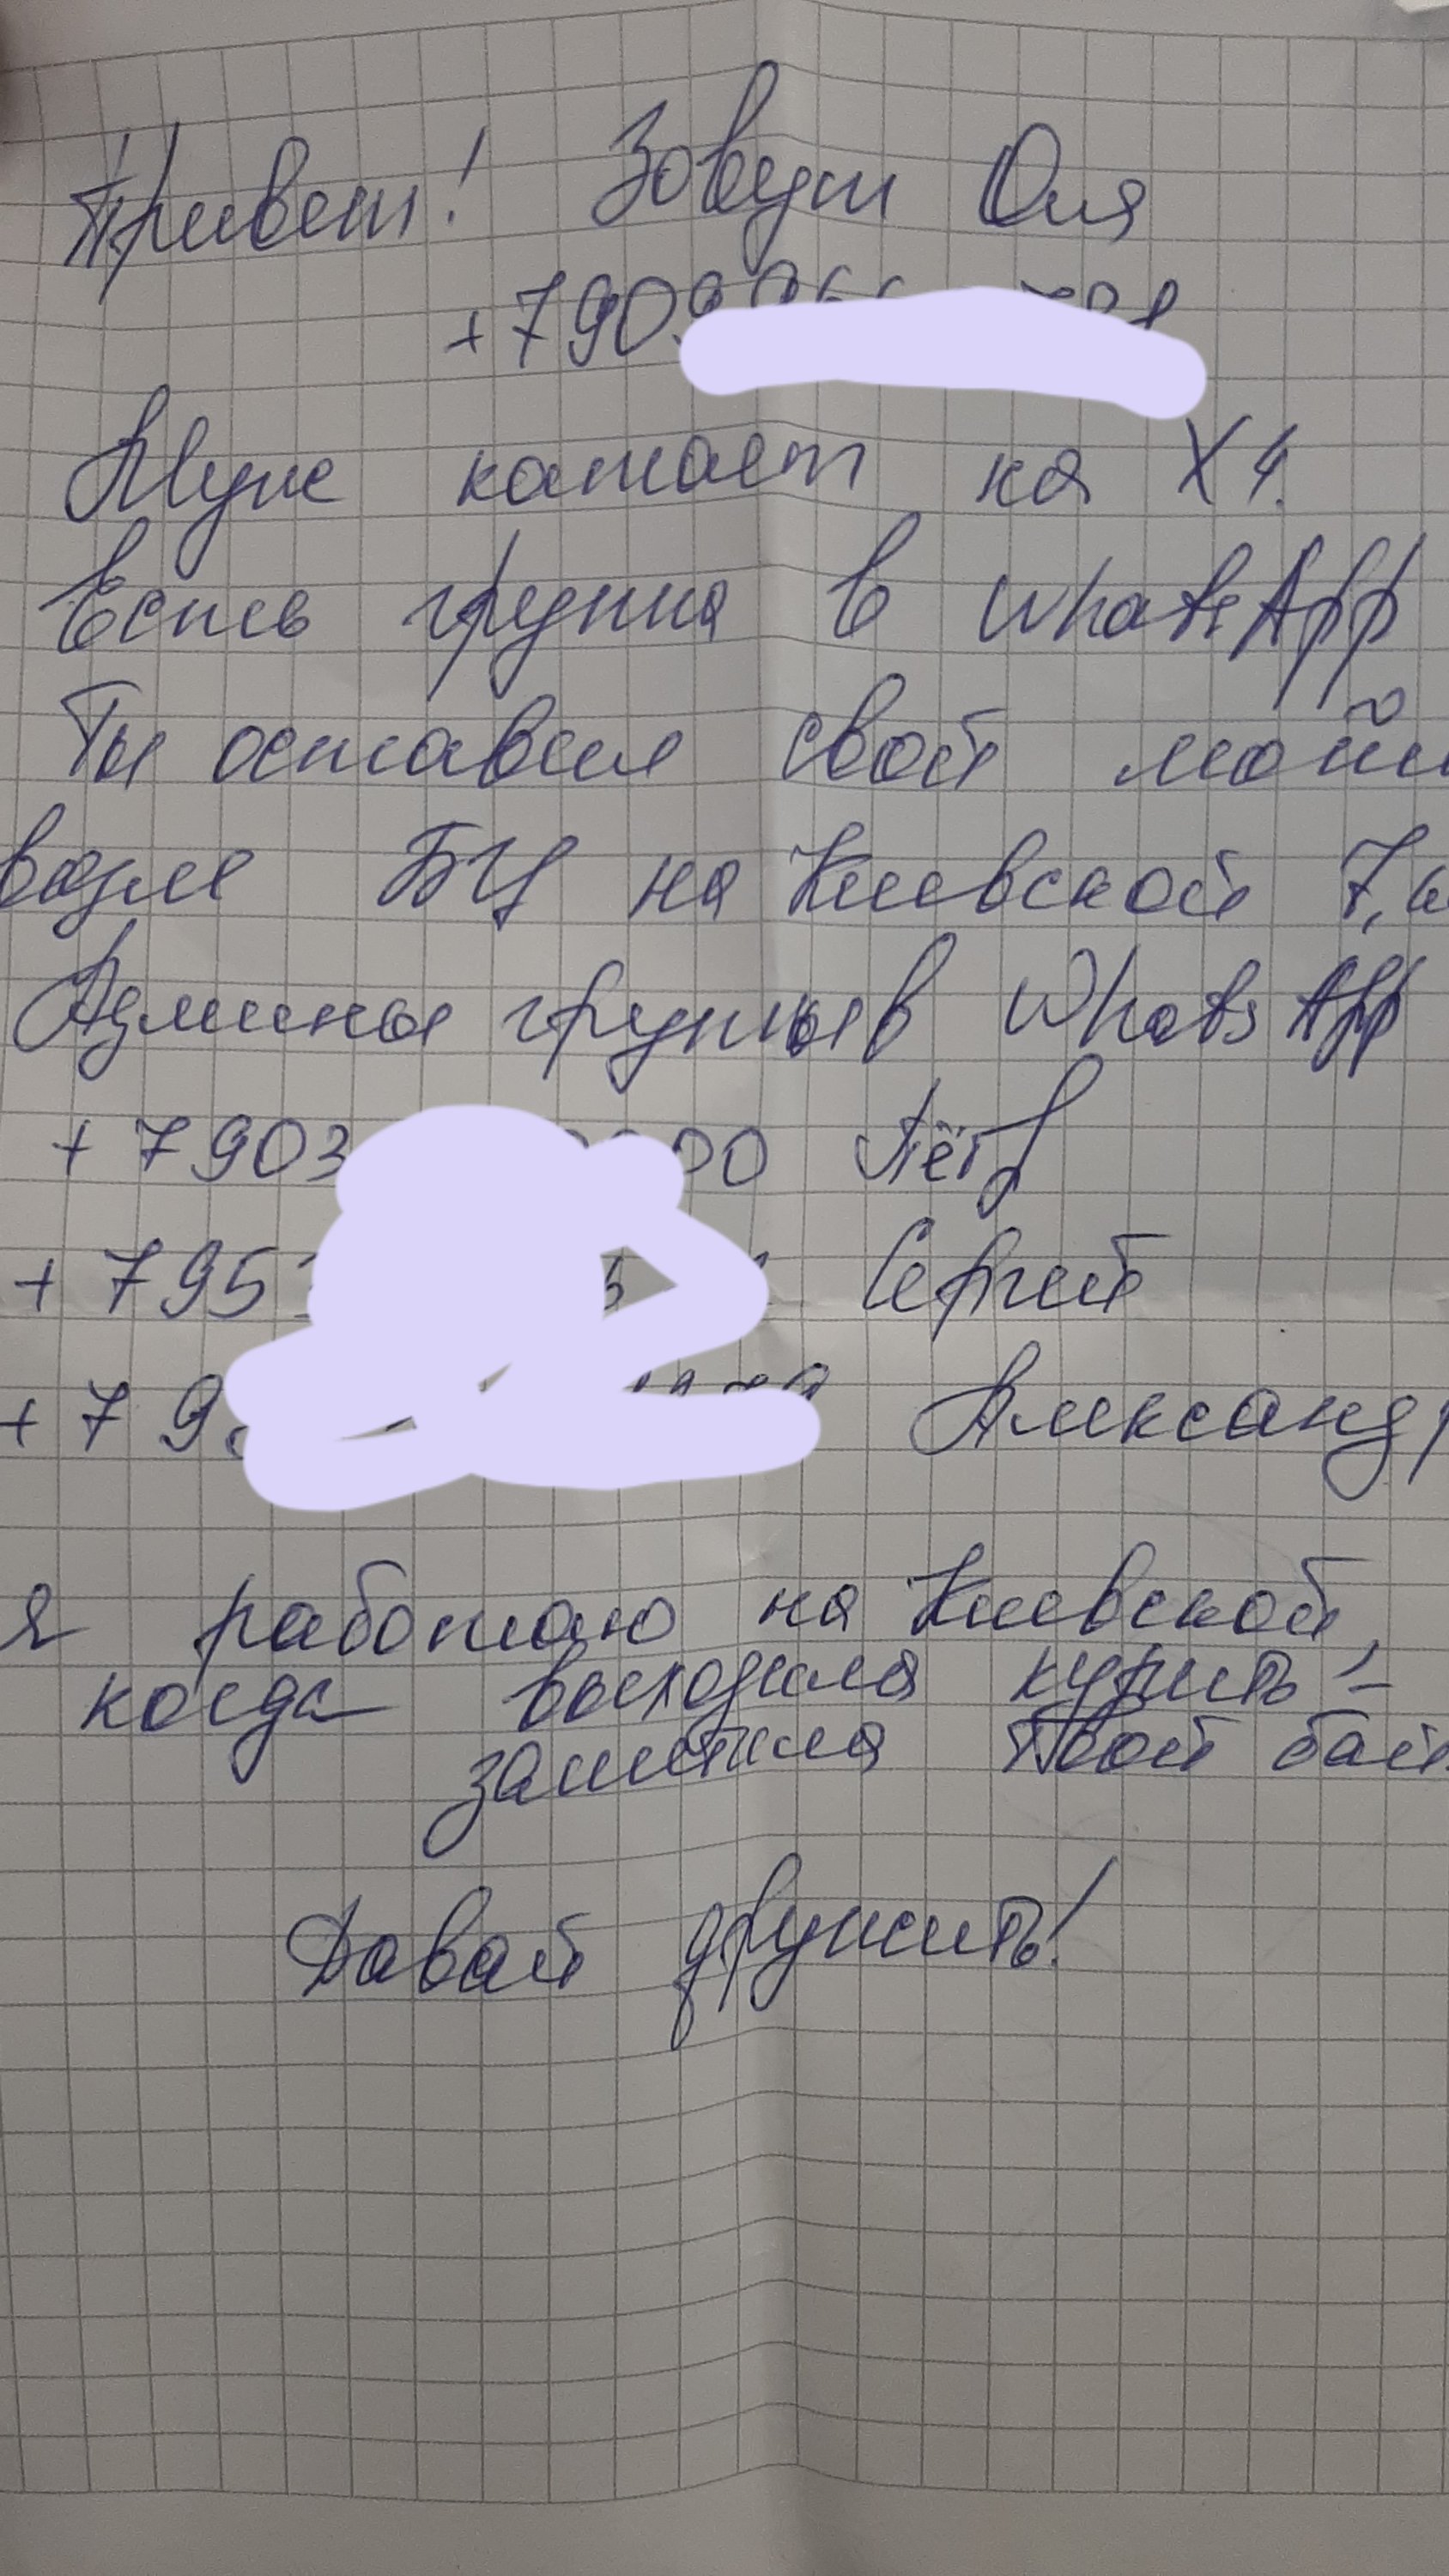 Привет! Зовут Оля
+7909
Муж катает на X4.
Есть группа в WhatsApp
Ты оставил свой
возле БЦ на Киевской 7,
Админы группы в WhatsApp
+7903 00 Пётр
+795 Сергей
+79 Александр
Я работаю на Киевской,
когда выходила курить –
заметила твой
Давай дружить!